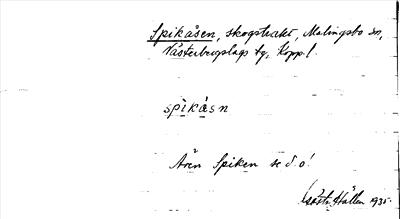 Spikåsen, skogstrakt, Malingsbo sn,
Västerbergslags tg, Kopp.l.
spìkå̀sn
Åsen Spiken se d. o!
Gösta Hallén 1935.